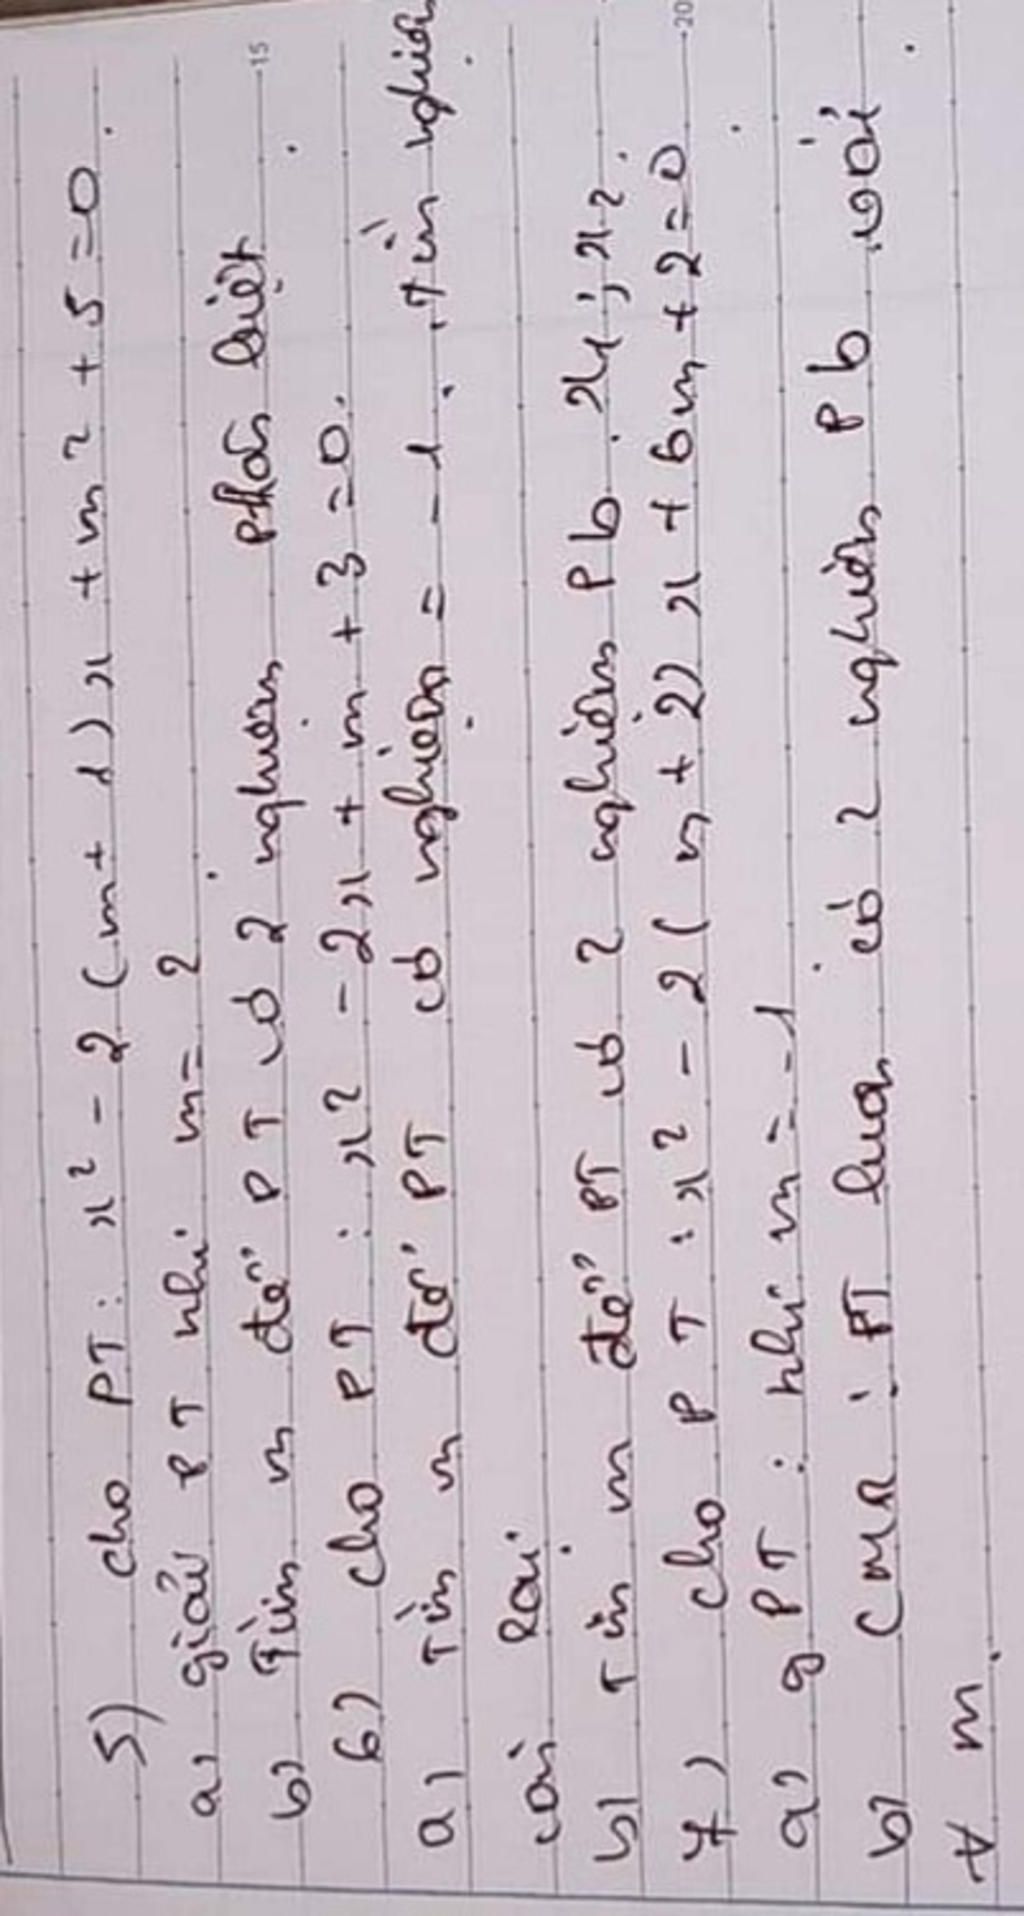 5) cho PT: x² - 2 (m + 1) x + m² + 5 = 0
a) giải PT khi m = 2
b) Tìm m để PT có 2 nghiệm phân biệt
6) cho PT : x² - 2x + m + 3 = 0.
a) Tìm m để PT có nghiệm = -1. Tìm nghiệm
còn lại
b) Tìm m để PT có 2 nghiệm Pb x₁ ; x₂.
7) cho PT : x² - 2 ( m + 2) x + 6m + 2 = 0
a) g PT : khi m = -1
b) CMR : PT luôn có 2 nghiệm Pb với
∀ m.
15
20